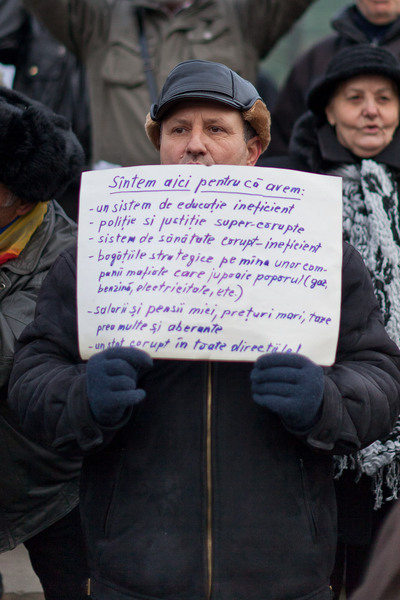 Sîntem aici pentru că avem:
- un sistem de educație ineficient
- poliție si justiție super-corupte
- sistem de sănătate corupt-ineficient
- bogățiile strategice pe mîna unor com-
panii mafiote care jupoaie poporul (gaz,
benzină, electricitate, etc.)
- salarii și pensii mici, prețuri mari, taxe
prea multe și aberante
- un stat corupt în toate direcțiile!